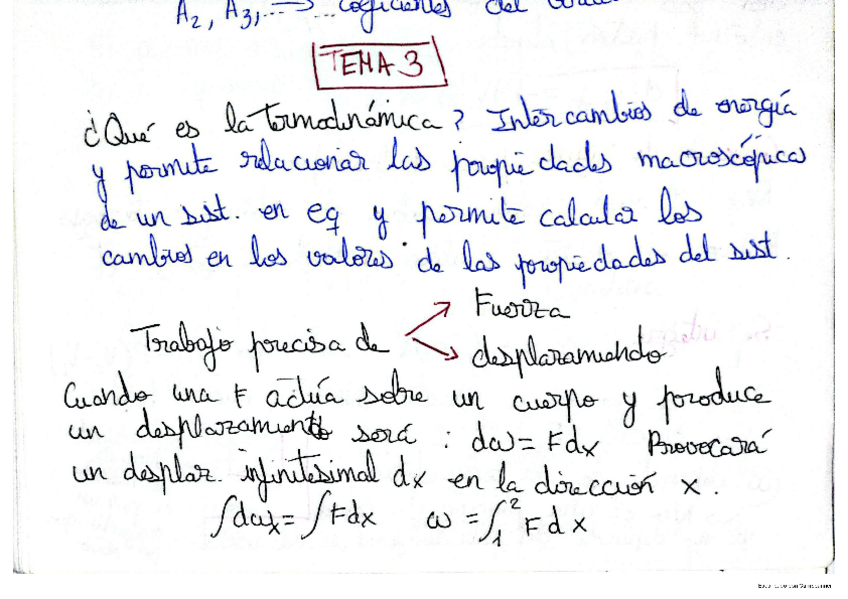 A₂, A₃,... → ... coeficientes del
TEMA 3
¿Qué es la termodinámica? Intercambios de energía
y permite relacionar las propiedades macroscópicas
de un sist. en eq y permite calcular los
cambios en los valores de las propiedades del sist.
Fuerza
Trabajo precisa de
desplazamiendo
Cuando una F actúa sobre un cuerpo y produce
un desplazamiento será : dω = Fdx Provocará
un desplaz. infinitesimal dx en la dirección x.
∫dωx = ∫Fdx ω = ∫₁² F d x